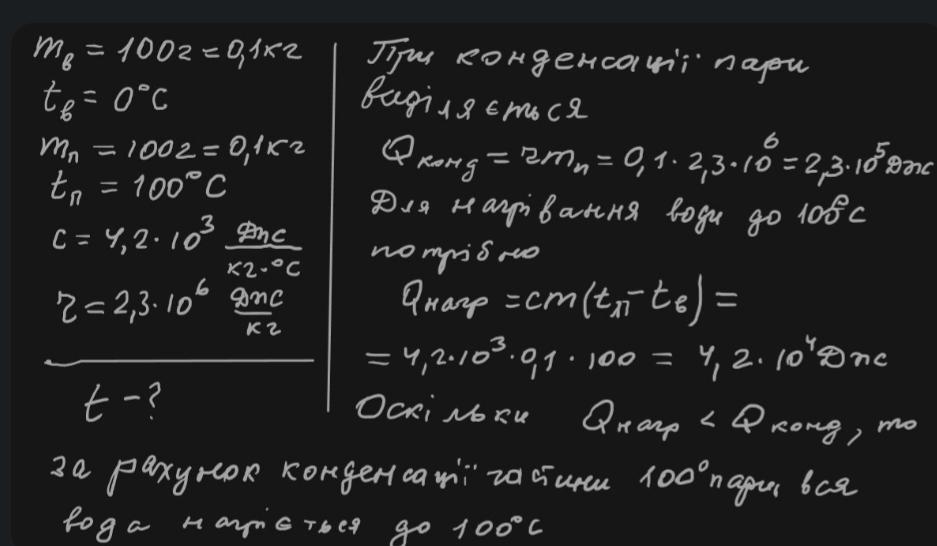 mв = 100г = 0,1кг
tв = 0°C
mп = 100г = 0,1кг
tп = 100°C
c = 4,2·10³ Дж/кг·°C
r = 2,3·10⁶ Дж/кг
t - ?
При конденсації пари
виділяється
Qконд = rmп = 0,1·2,3·10⁶ = 2,3·10⁵Дж
Для нагрівання води до 100°C
потрібно
Qнагр = cm(tп - tв) =
= 4,2·10³·0,1·100 = 4,2·10⁴Дж
Оскільки Qнагр < Qконд, то
за рахунок конденсації частини 100° пари, вся
вода нагріється до 100°C